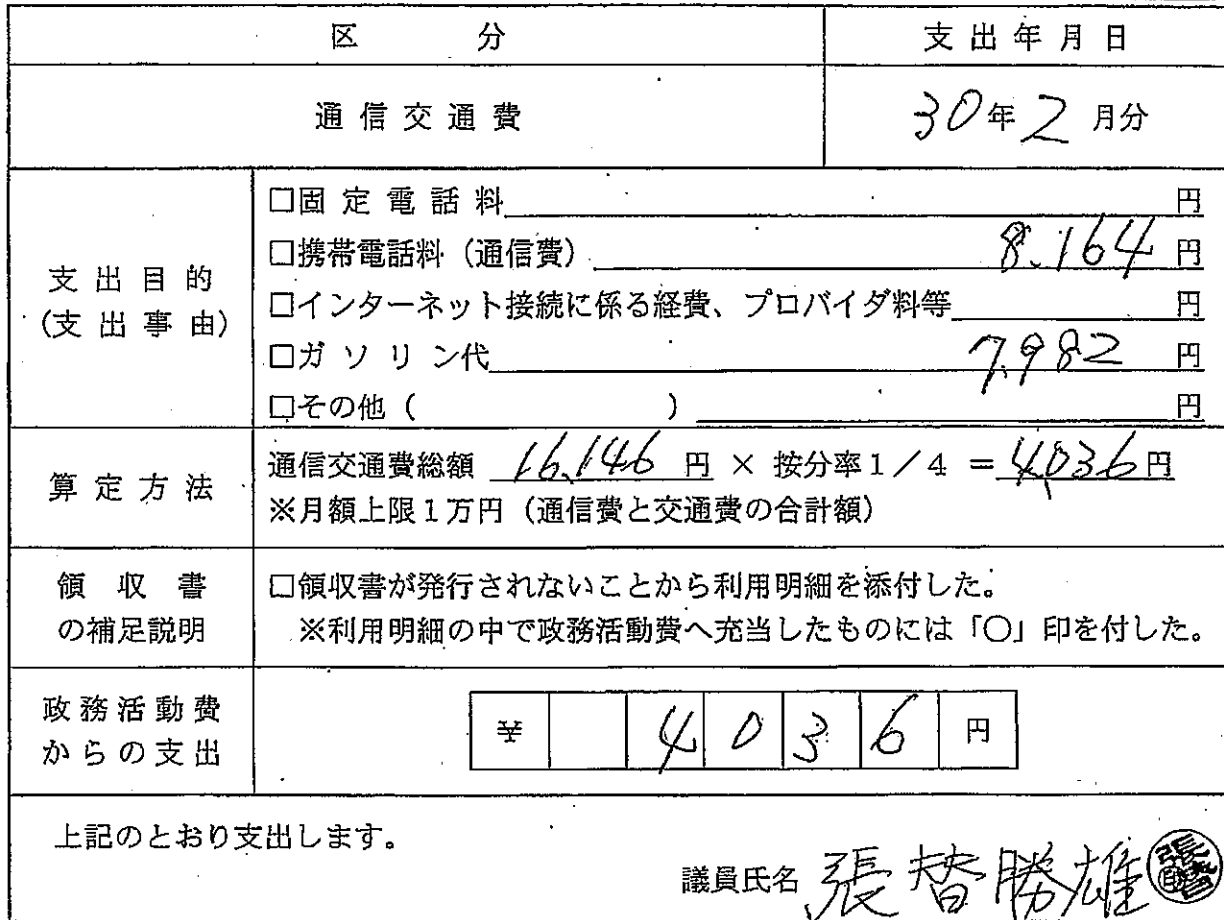 区 分 支出年月日
通信交通費 30年2月分
支出目的
(支出事由)
□固定電話料 円
□携帯電話料（通信費） 8,164 円
□インターネット接続に係る経費、プロバイダ料等 円
□ガソリン代 7,982 円
□その他（ ） 円
算定方法
通信交通費総額 16,146 円 × 按分率1／4 ＝ 4,036円
※月額上限1万円（通信費と交通費の合計額）
領収書
の補足説明
□領収書が発行されないことから利用明細を添付した。
※利用明細の中で政務活動費へ充当したものには「○」印を付した。
政務活動費
からの支出
¥ 4 0 3 6 円
上記のとおり支出します。
議員氏名 張替勝雄 張替